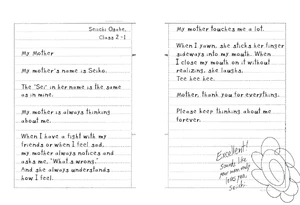 Seiichi Ogabe,
Class 2-1
My Mother
My mother's name is Seiko.
The "Sei" in her name is the same
as in mine.
My mother is always thinking
about me.
When I have a fight with my
friends or when I feel sad,
my mother always notices and
asks me, "What's wrong."
And she always understands
how I feel.
My mother touches me a lot.
When I yawn, she sticks her finger
sideways into my mouth. When
I close my mouth on it without
realizing, she laughs,
Tee hee hee.
Mother, thank you for everything.
Please keep thinking about me
forever.
Excellent!
Sounds like
your mom really
loves you,
Seiichi.